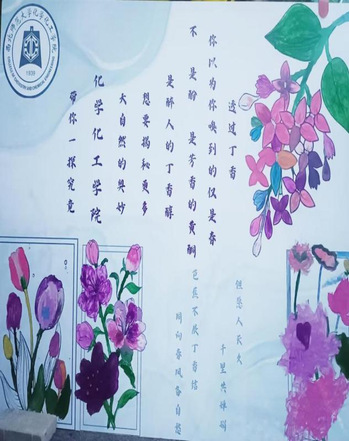 西北师范大学化学化工学院
1939
透过丁香
你以为你嗅到的仅是春
不是的 是芳香的黄酮
是醉人的丁香醇
想要揭秘更多
大自然的奥妙
化学化工学院
带你一探究竟
但愿人长久
千里共婵娟
芭蕉不展丁香结
同向春风各自愁